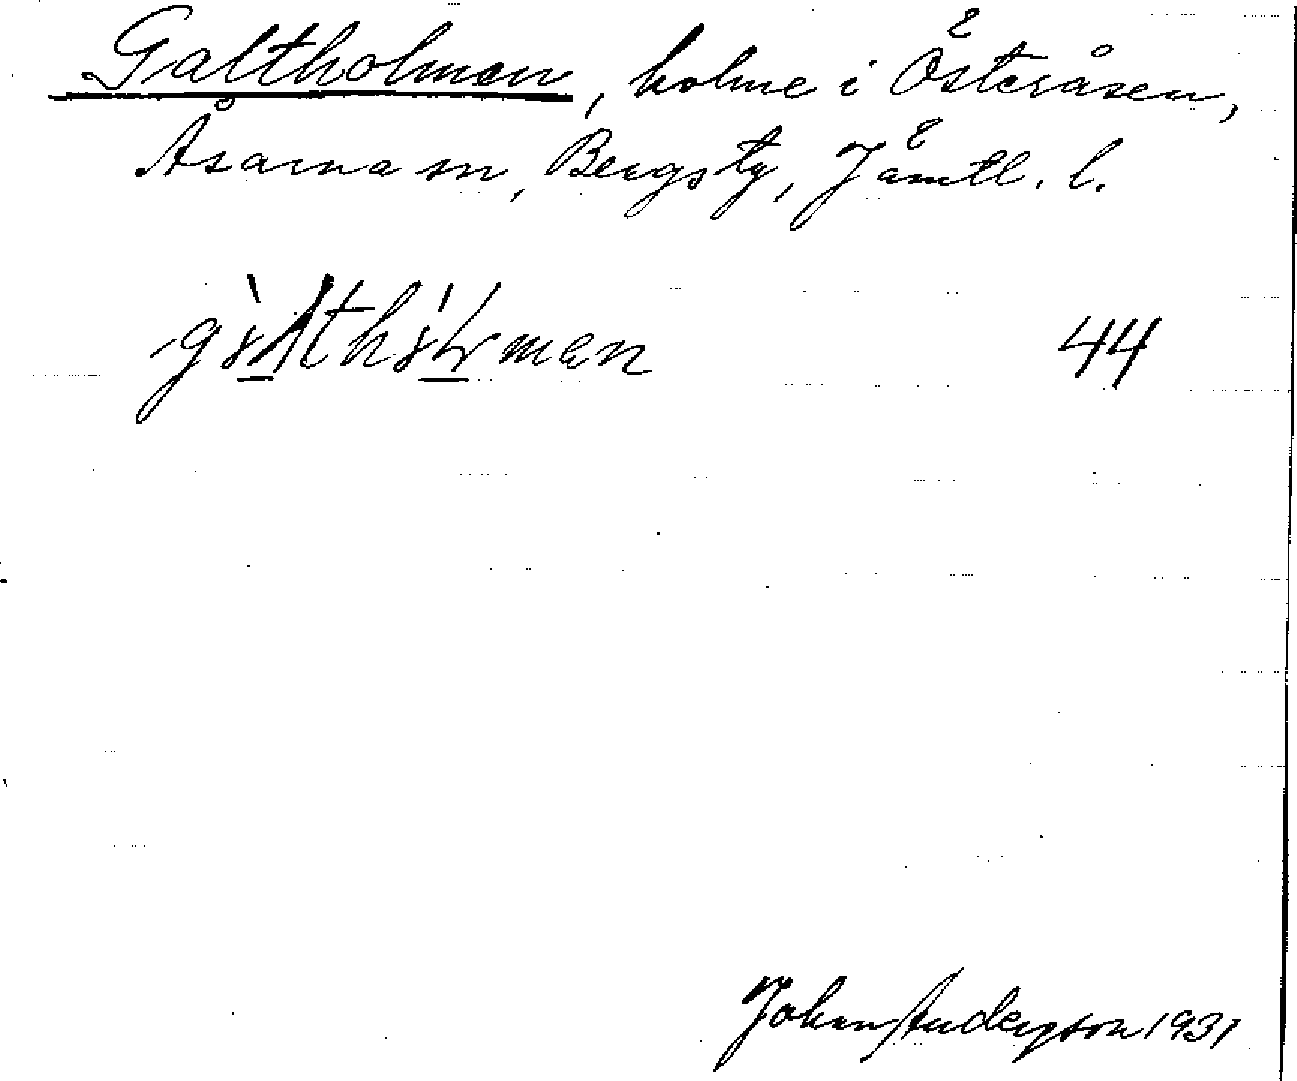 Galtholmen, holme i Österåsen,
Åsarna sn, Bergs tg, Jämtl. l.
44
Johan Anderson 1931